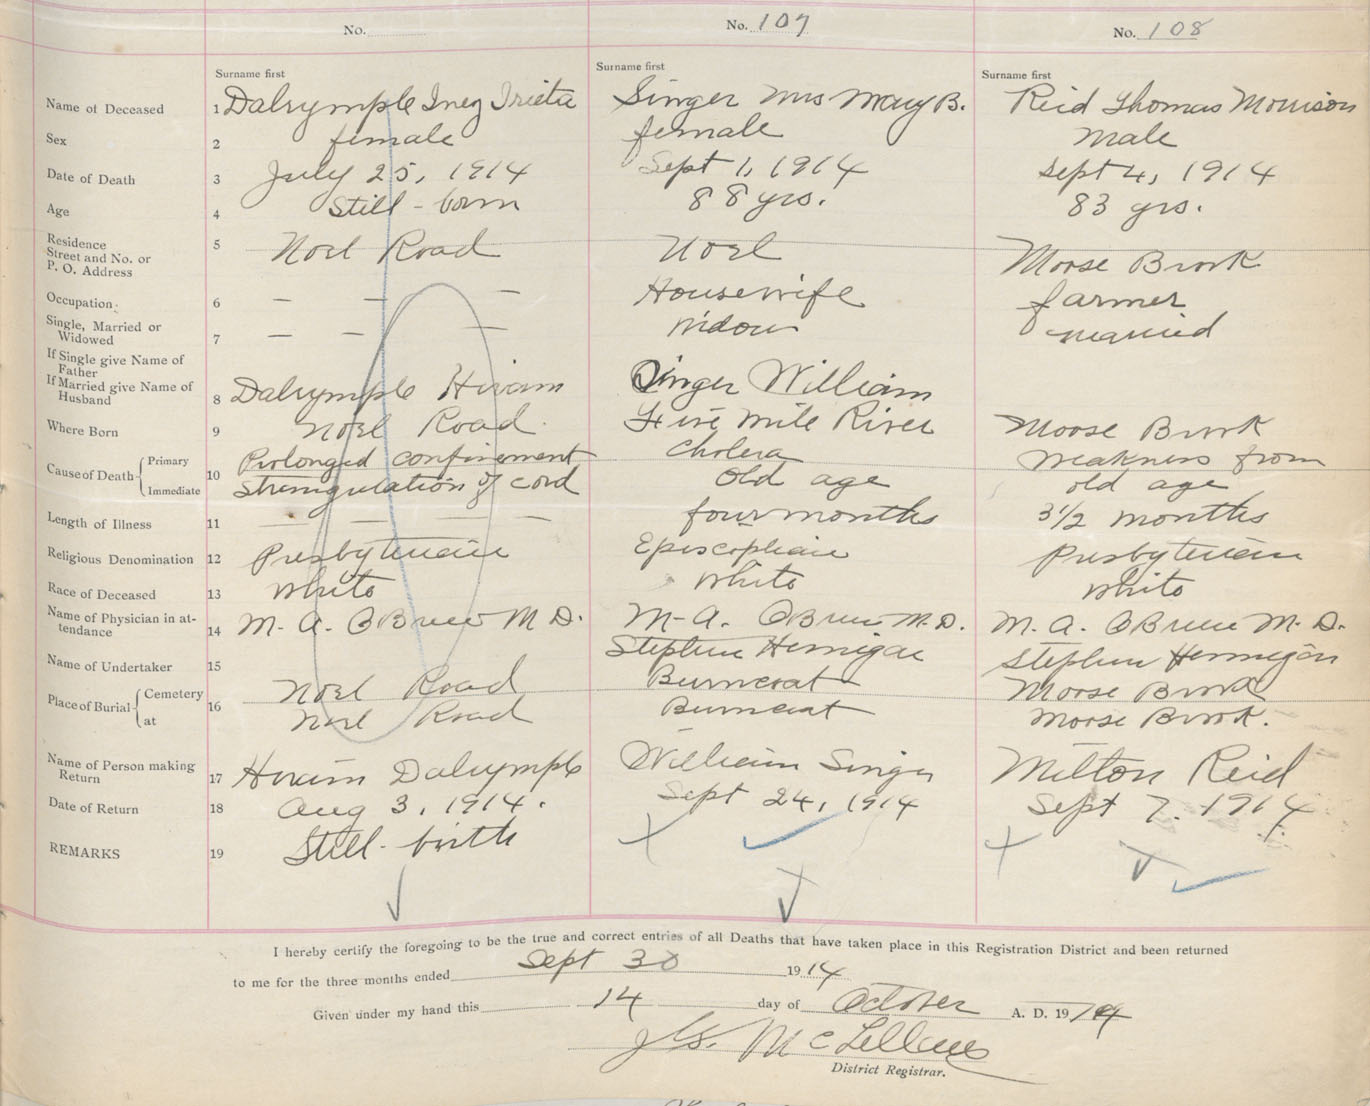 No.
No. 107
No. 108
Surname first
Surname first
Surname first
Name of Deceased 1 Dalrymple Inez Irieta Singer Mrs Mary B. Reid Thomas Morrison
Sex 2 female female male
Date of Death 3 July 25, 1914 Sept 1, 1914 Sept 4, 1914
Age 4 Still-born 88 yrs. 83 yrs.
Residence
Street and No. or
P. O. Address 5 Noel Road Noel Moose Brook
Occupation 6 — — — Housewife farmer
Single, Married or
Widowed 7 — — — Widow married
If Single give Name of
Father
If Married give Name of
Husband 8 Dalrymple Hiram Singer William
Where Born 9 Noel Road Five Mile River Moose Brook
Cause of Death { Primary Prolonged confinement Cholera weakness from
Immediate 10 Strangulation of cord Old age old age
Length of Illness 11 — — — four months 3 1/2 months
Religious Denomination 12 Presbyterian Episcopalian Presbyterian
Race of Deceased 13 White White White
Name of Physician in at-
tendance 14 M. A. O'Brien M D. M. A. O'Brien M. D. M. A. O'Brien M. D.
Name of Undertaker 15 Stephen Hennigar Stephen Hennigar
Place of Burial { Cemetery 16 Noel Road Burncoat Moose Brook
at Noel Road Burncoat Moose Brook.
Name of Person making
Return 17 Hiram Dalrymple William Singer Milton Reid
Date of Return 18 Aug 3, 1914. Sept 24, 1914 Sept 7. 1914
REMARKS 19 Still-birth
I hereby certify the foregoing to be the true and correct entries of all Deaths that have taken place in this Registration District and been returned
to me for the three months ended Sept 30 1914
Given under my hand this 14 day of October A. D. 1914
McLellan
District Registrar.